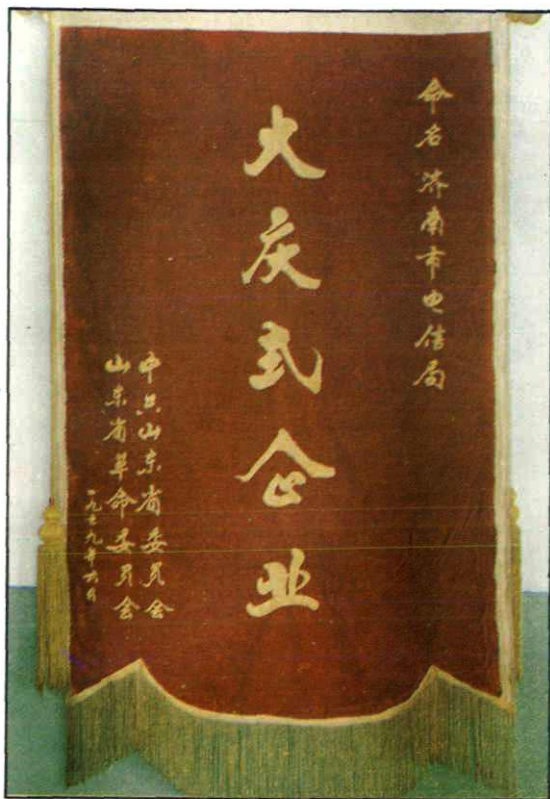 命名济南市电信局
大庆式企业
中共山东省委员会
山东省革命委员会
一九七九年六月